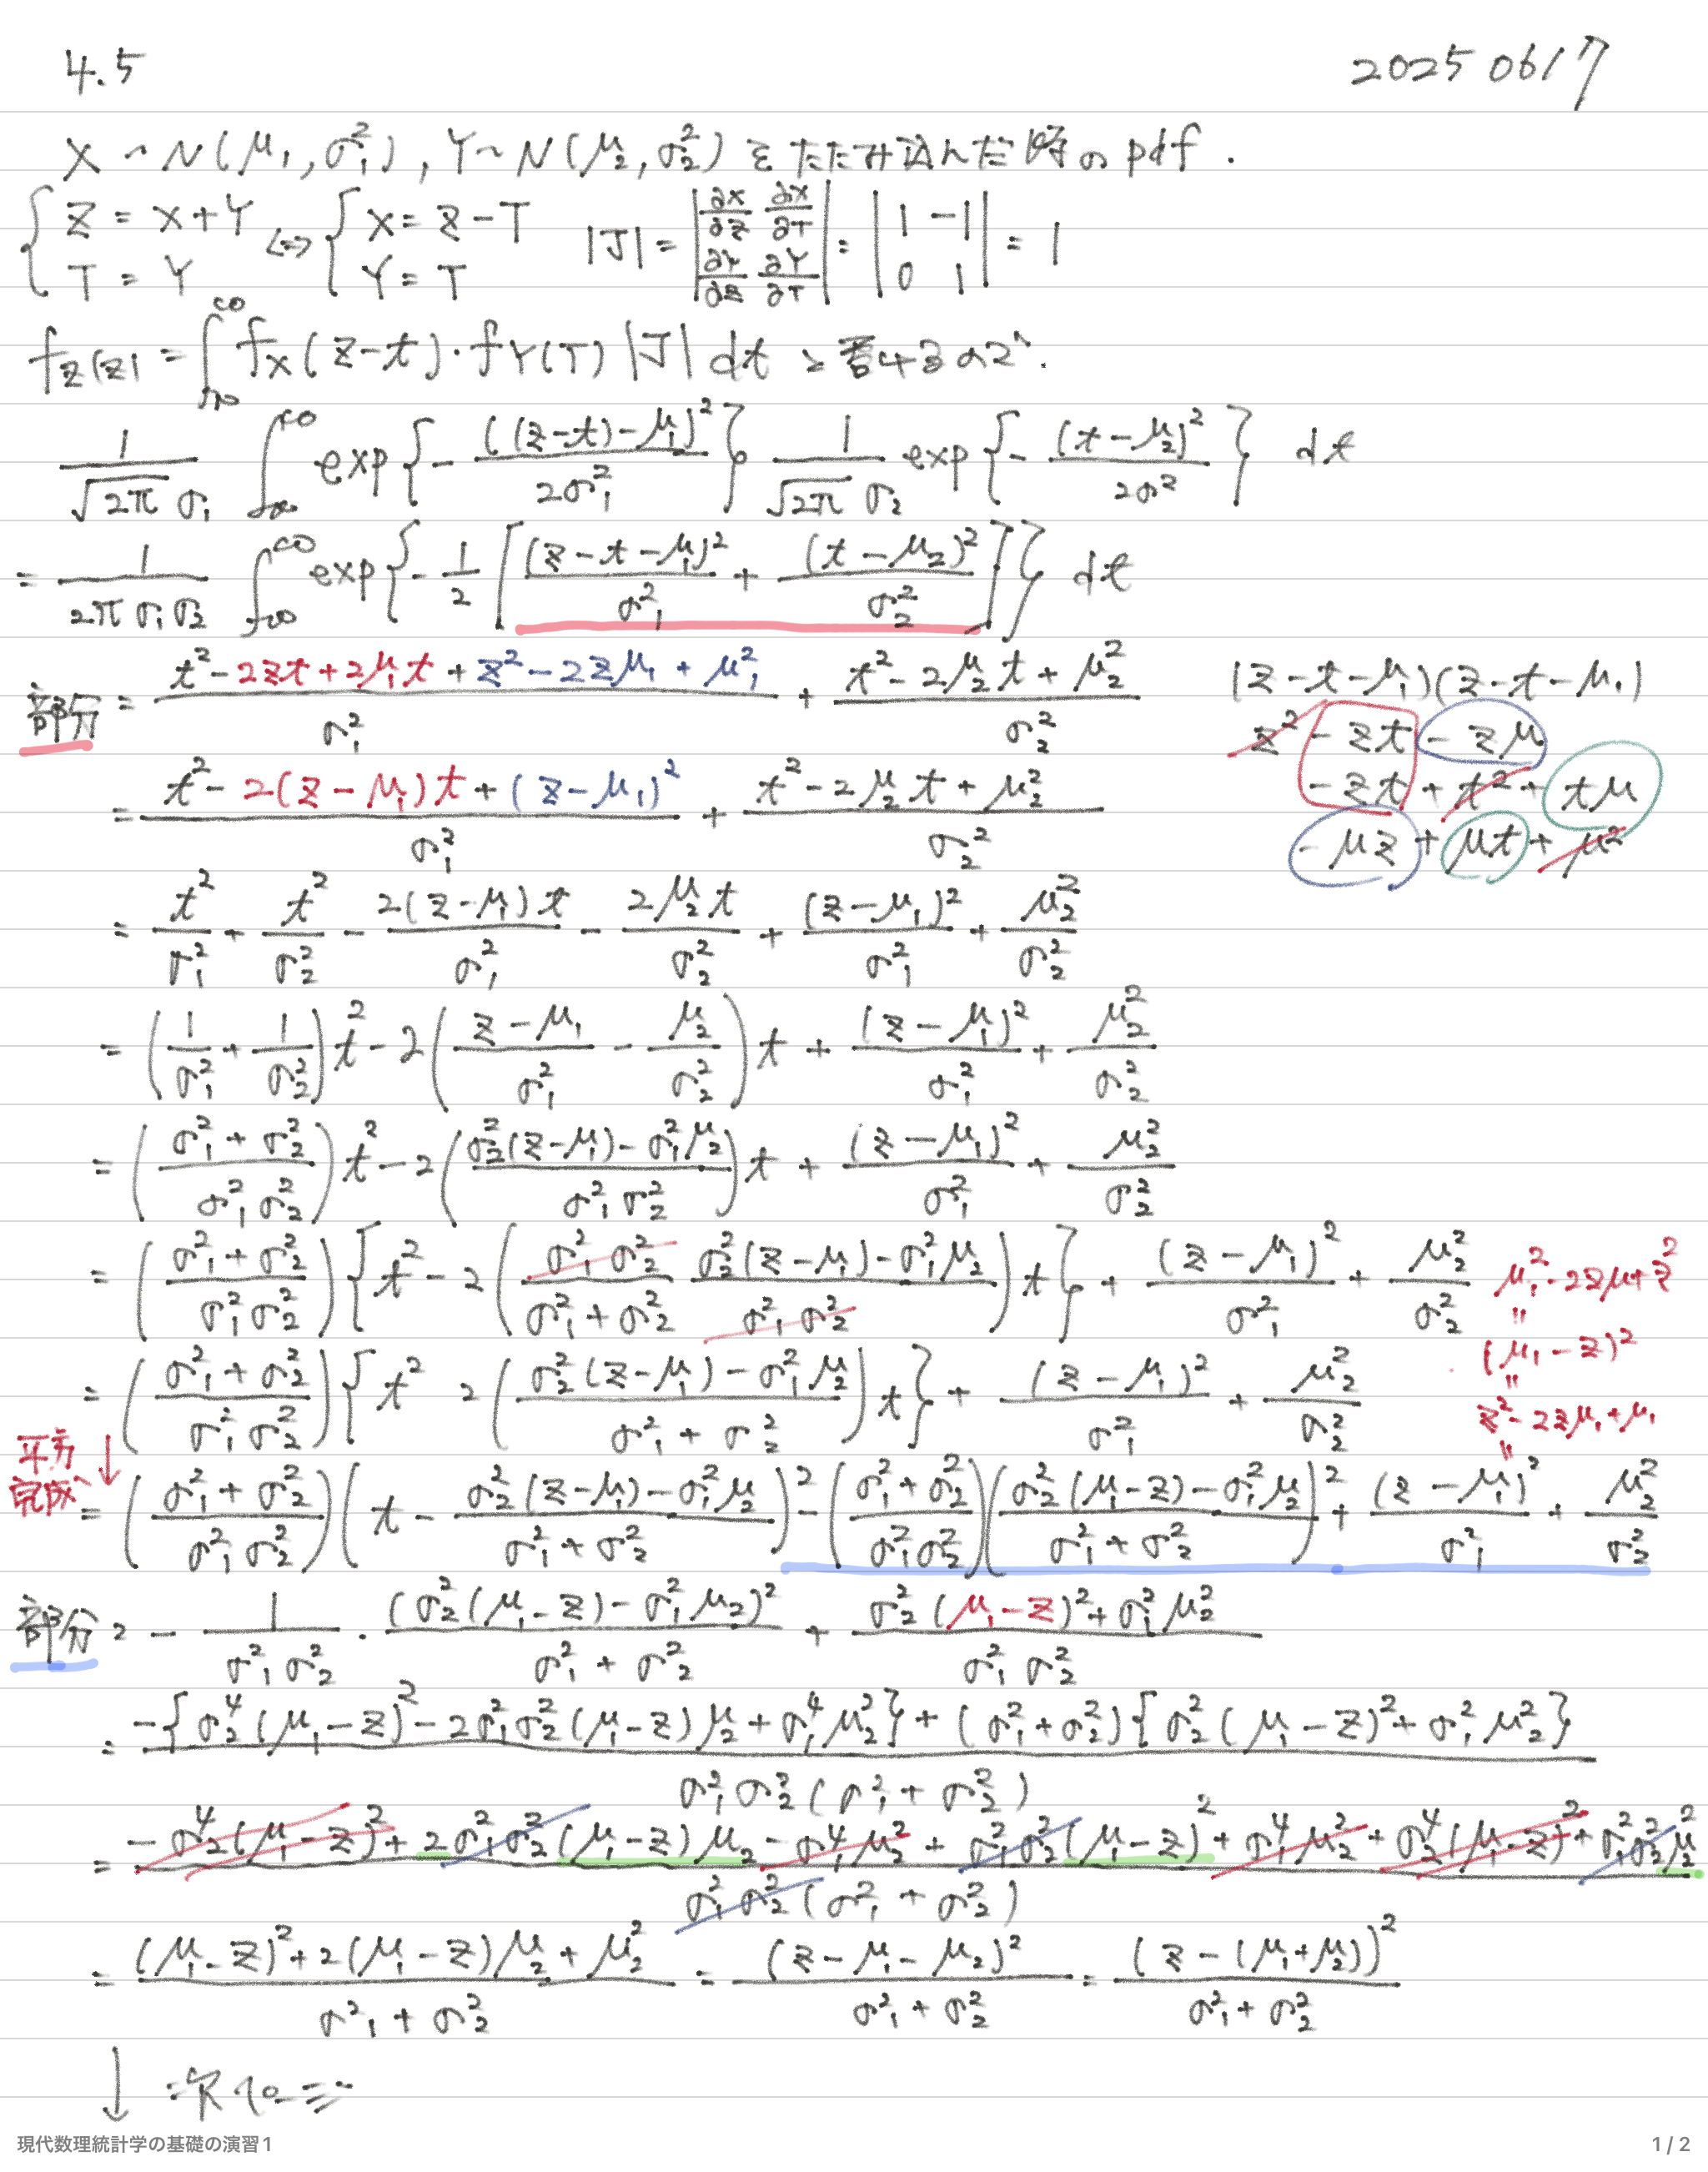 4.5 20250617
X ~ N(μ₁, σ₁²), Y ~ N(μ₂, σ₂²) をたたみ込んだ時の pdf.
{ Z = X+Y, T = Y ⇔ { X = Z-T, Y = T |J| = | ∂X/∂Z ∂X/∂T ; ∂Y/∂Z ∂Y/∂T | = | 1 -1 ; 0 1 | = 1
f_Z(z) = ∫_{-∞}^{∞} f_X(z-t)・f_Y(T) |J| dt と書けるので.
1/(√2π σ₁) ∫_{-∞}^{∞} exp{ - ((z-t)-μ₁)²/2σ₁² } 1/(√2π σ₂) exp{ - (t-μ₂)²/2σ² } dt
= 1/(2π σ₁σ₂) ∫_{-∞}^{∞} exp{ - 1/2 [ (z-t-μ₁)²/σ₁² + (t-μ₂)²/σ₂² ] } dt
部分 = (t² - 2zt + 2μ₁t + z² - 2zμ₁ + μ₁²)/σ₁² + (t² - 2μ₂t + μ₂²)/σ₂²
(z-t-μ₁)(z-t-μ₁)
z² - zt - zμ
- zt + t² + tμ
- μz + μt + μ²
= (t² - 2(z-μ₁)t + (z-μ₁)²)/σ₁² + (t² - 2μ₂t + μ₂²)/σ₂²
= t²/σ₁² + t²/σ₂² - 2(z-μ₁)t/σ₁² - 2μ₂t/σ₂² + (z-μ₁)²/σ₁² + μ₂²/σ₂²
= (1/σ₁² + 1/σ₂²)t² - 2((z-μ₁)/σ₁² - μ₂/σ₂²)t + (z-μ₁)²/σ₁² + μ₂²/σ₂²
= ((σ₁²+σ₂²)/σ₁²σ₂²)t² - 2((σ₂²(z-μ₁) - σ₁²μ₂)/σ₁²σ₂²)t + (z-μ₁)²/σ₁² + μ₂²/σ₂²
= ((σ₁²+σ₂²)/σ₁²σ₂²){ t² - 2( σ₁²σ₂²/(σ₁²+σ₂²) (σ₂²(z-μ₁) - σ₁²μ₂)/σ₁²σ₂² )t } + (z-μ₁)²/σ₁² + μ₂²/σ₂²
μ₁² - 2zμ + z²
=
(μ₁ - z)²
=
z² - 2zμ₁ + μ₁
=
= ((σ₁²+σ₂²)/σ₁²σ₂²){ t² 2( (σ₂²(z-μ₁) - σ₁²μ₂)/(σ₁²+σ₂²) )t } + (z-μ₁)²/σ₁² + μ₂²/σ₂²
平方完成 ↓
= ((σ₁²+σ₂²)/σ₁²σ₂²)( t - (σ₂²(z-μ₁) - σ₁²μ₂)/(σ₁²+σ₂²) )² - ((σ₁²+σ₂²)/σ₁²σ₂²)( (σ₂²(μ₁-z) - σ₁²μ₂)/(σ₁²+σ₂²) )² + (z-μ₁)²/σ₁² + μ₂²/σ₂²
部分 = - 1/σ₁²σ₂² ・ (σ₂²(μ₁-z) - σ₁²μ₂)²/(σ₁²+σ₂²) + (σ₂²(μ₁-z)² + σ₁²μ₂²)/σ₁²σ₂²
= ( -{σ₂⁴(μ₁-z)² - 2σ₁²σ₂²(μ₁-z)μ₂ + σ₁⁴μ₂²} + (σ₁²+σ₂²){σ₂²(μ₁-z)² + σ₁²μ₂²} ) / σ₁²σ₂²(σ₁²+σ₂²)
= ( -σ₂⁴(μ₁-z)² + 2σ₁²σ₂²(μ₁-z)μ₂ - σ₁⁴μ₂² + σ₁²σ₂²(μ₁-z)² + σ₁⁴μ₂² + σ₂⁴(μ₁-z)² + σ₁²σ₂²μ₂² ) / σ₁²σ₂²(σ₁²+σ₂²)
= ((μ₁-z)² + 2(μ₁-z)μ₂ + μ₂²)/(σ₁²+σ₂²) = (z-μ₁-μ₂)²/(σ₁²+σ₂²) = (z-(μ₁+μ₂))²/(σ₁²+σ₂²)
↓
現代数理統計学の基礎の演習1 1 / 2